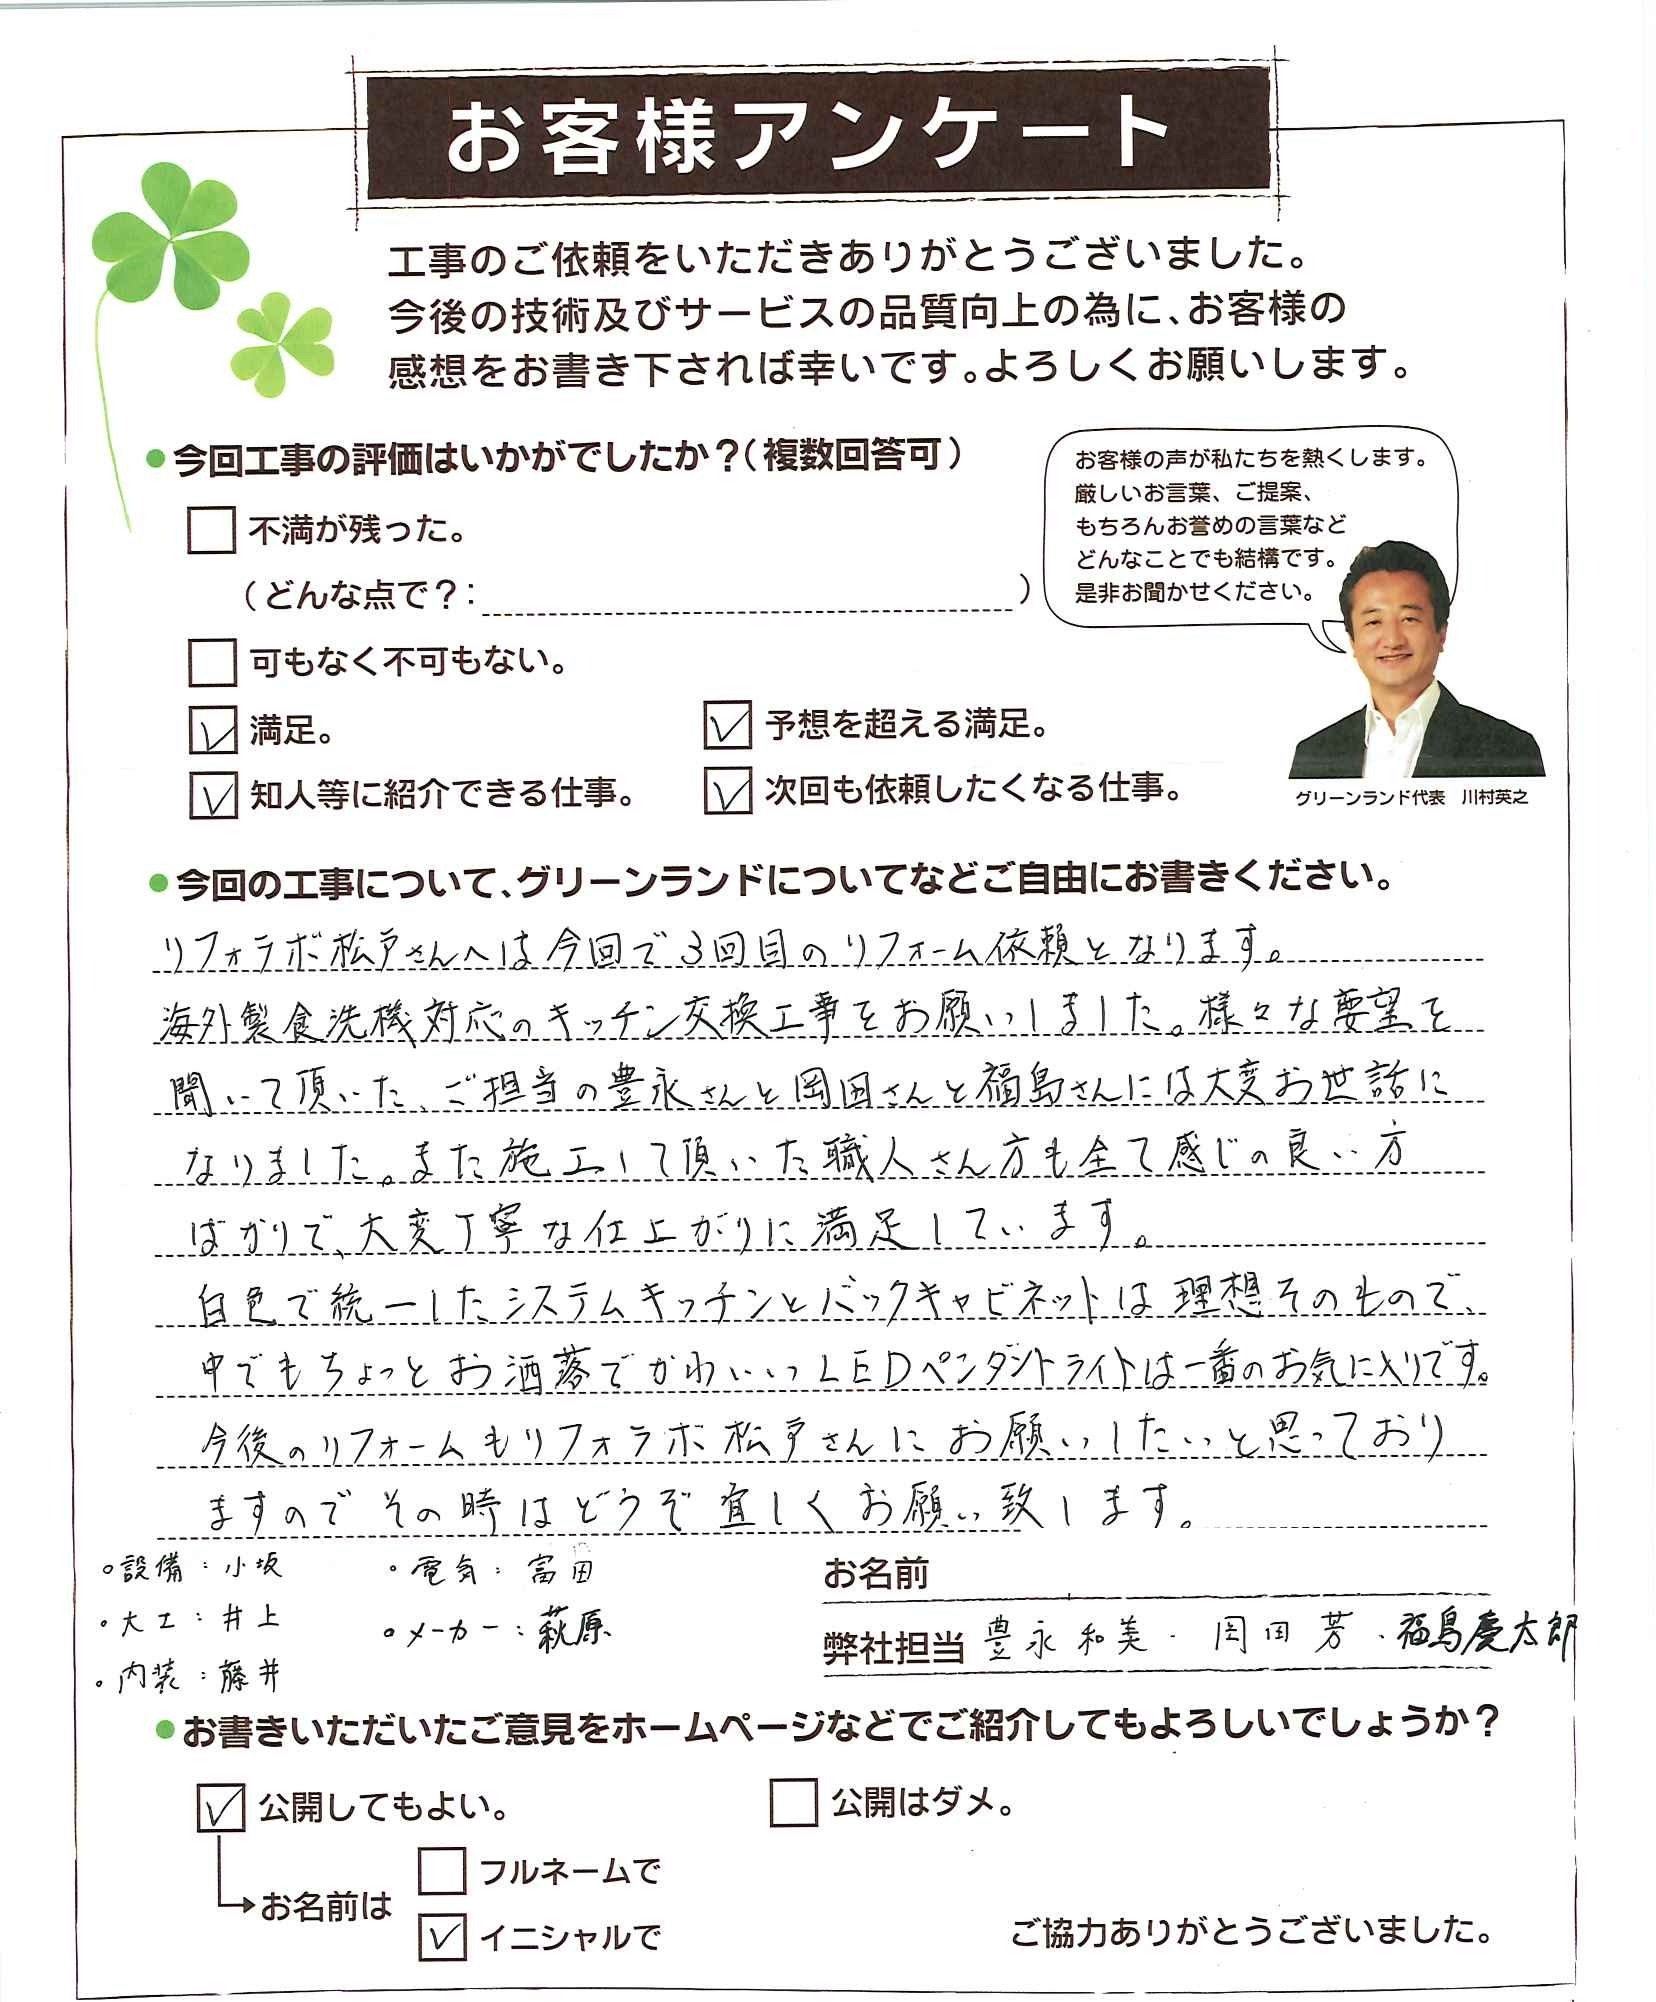 お客様アンケート
工事のご依頼をいただきありがとうございました。
今後の技術及びサービスの品質向上の為に、お客様の
感想をお書き下されば幸いです。よろしくお願いします。
●今回工事の評価はいかがでしたか？（複数回答可）
不満が残った。
（どんな点で？：　）
可もなく不可もない。
満足。
予想を超える満足。
知人等に紹介できる仕事。
次回も依頼したくなる仕事。
お客様の声が私たちを熱くします。
厳しいお言葉、ご提案、
もちろんお誉めの言葉など
どんなことでも結構です。
是非お聞かせください。
グリーンランド代表　川村英之
●今回の工事について、グリーンランドについてなどご自由にお書きください。
リフォラボ松戸さんへは今回で3回目のリフォーム依頼となります。
海外製食洗機対応のキッチン交換工事をお願いしました。様々な要望を
聞いて頂いた、ご担当の豊永さんと岡田さんと福島さんには大変お世話に
なりました。また施工して頂いた職人さん方も全て感じの良い方
ばかりで、大変丁寧な仕上がりに満足しています。
白色で統一したシステムキッチンとバックキャビネットは理想そのもので、
中でもちょっとお洒落でかわいいLEDペンダントライトは一番のお気に入りです。
今後のリフォームもリフォラボ松戸さんにお願いしたいと思っており
ますのでその時はどうぞ宜しくお願い致します。
○設備：小坂
・電気：富田
・大工：井上
・メーカー：萩原
・内装：藤井
お名前
弊社担当 豊永和美・岡田芳・福島慶太郎
●お書きいただいたご意見をホームページなどでご紹介してもよろしいでしょうか？
公開してもよい。
公開はダメ。
お名前は
フルネームで
イニシャルで
ご協力ありがとうございました。